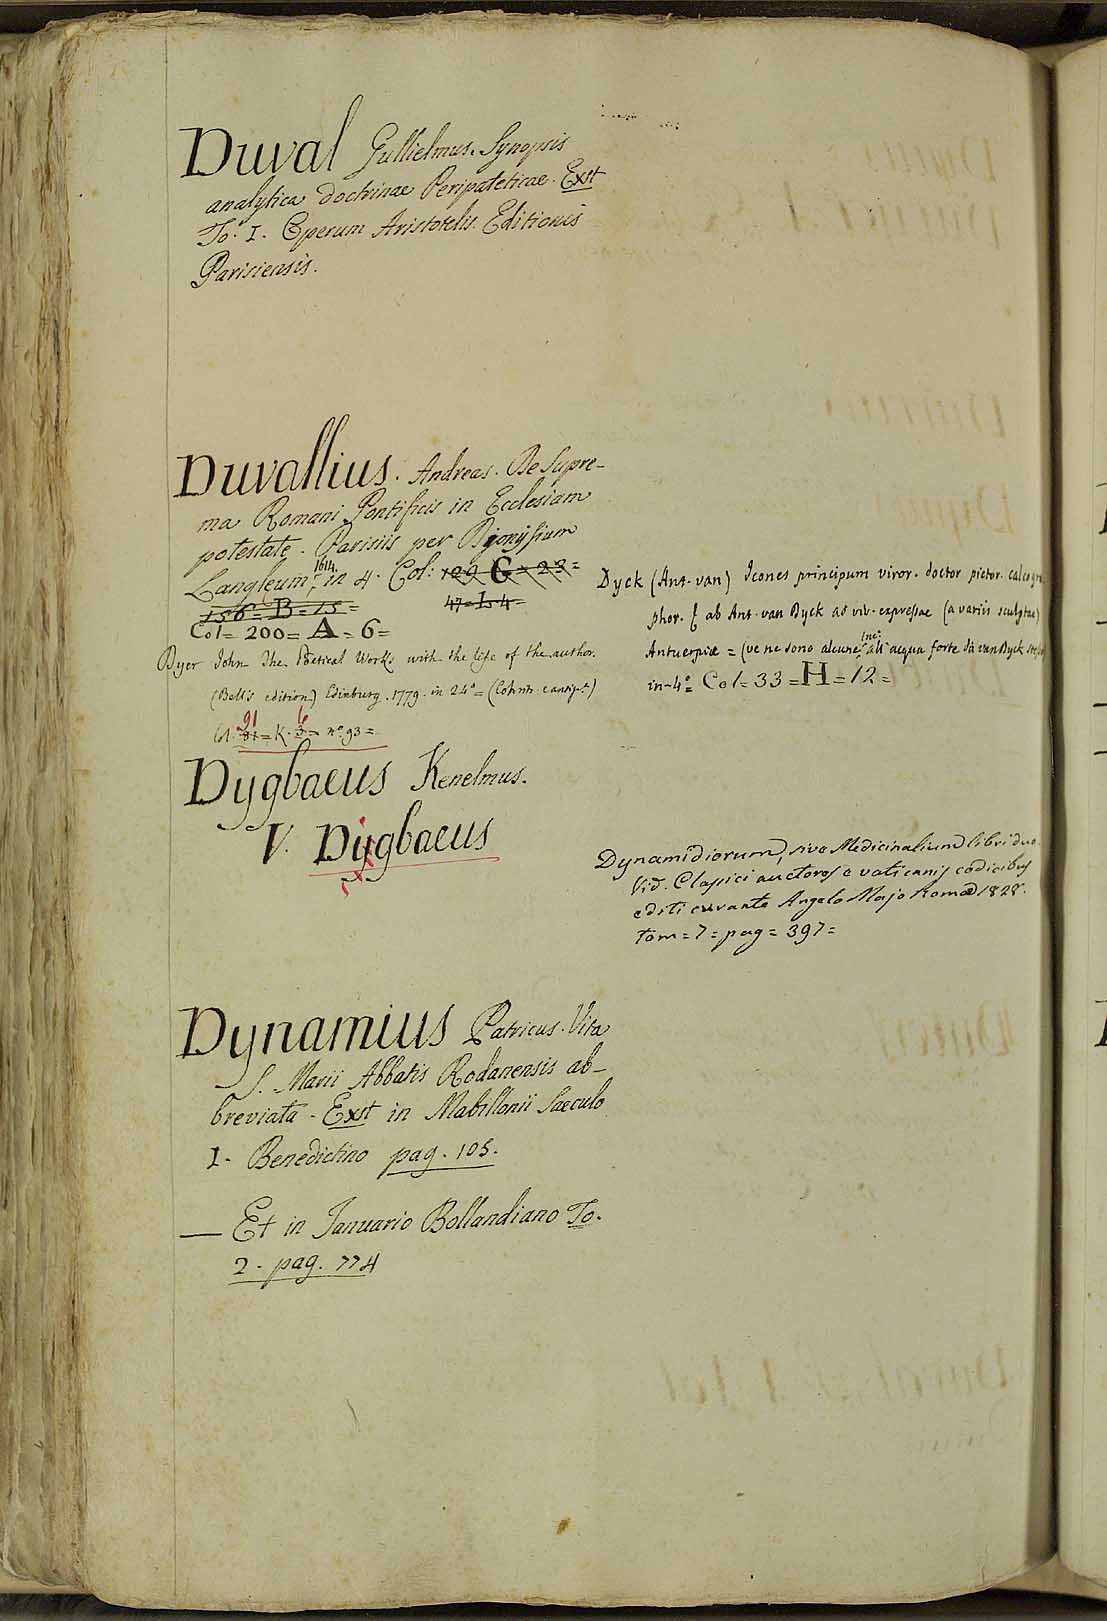 Duval Gullielmus. Synopsis
analytica doctrinae Peripateticae. Exst
To. I. Operum Aristotelis. Editionis
Parisiensis.
Duvallius. Andreas. De Supre-
ma Romani Pontificis in Ecclesiam
potestate. Parisiis per Dionysium
Langleum, 1614. in 4. Col: 109 G = 23 =
156 = B = 15 = 47 = I. 4 =
Col = 200 = A = 6 =
Dyer John The Poetical Works with the life of the author.
(Bell's edition) Edinburg. 1779. in 24° = (Coh ntr e antip.)
Col. 91 = K. 6 = n° 93 =
Dygbaeus Kenelmus.
V. Dygbaeus
Dynamius Patricus. Vita
S. Marii Abbatis Bodanensis ab-
breviata. Exst in Mabillonii Saeculo
I. Benedictino pag. 105.
— Et in Januario Bollandiano To.
2. pag. 774
Dyck (Ant. van) Icones principum viror. doctor pictor. calcogra
phor. & ab Ant. van Dyck ad viv. expressae (a variis sculptae)
Antuerpiae = (ve ne sono alcune inc: all'acqua forte di van Dyck
in-4° = Col = 33 = H = 12 =
Dynamidiorum, sive Medicinalium libri duo.
Vid. Classici auctores e vaticanis codicibus
editi curante Angelo Majo Romae 1828.
tom = 7 = pag = 397 =